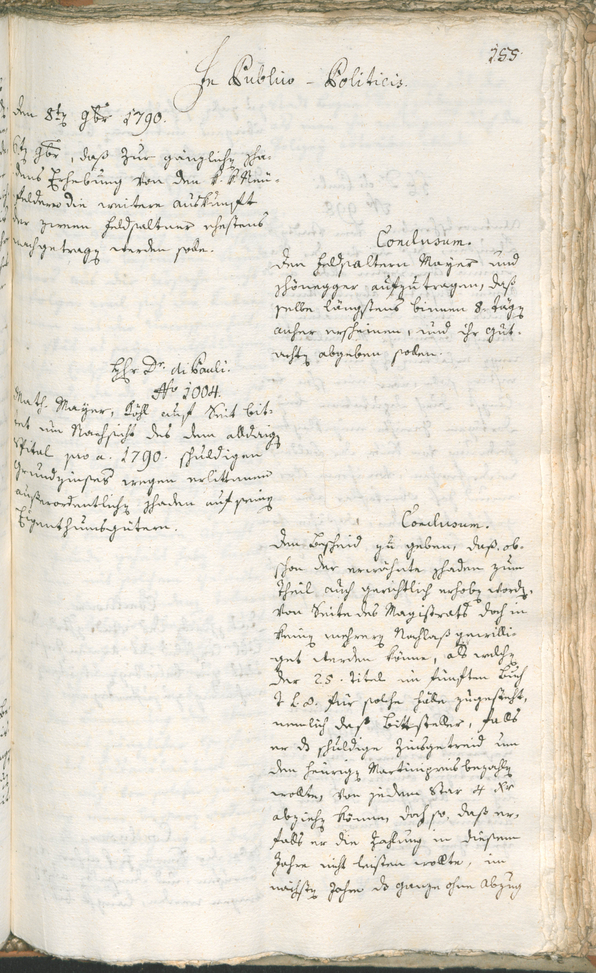 155
In Publico-Politicis.
den 8ten 9br 1790.
6ten 9br, daß zur gänzlichen scha-
dens Erhebung von den
feldern die weitere auskunft
der zween feldsaltner ehestens
nachgetragen werden solle.
Conclusum.
den feldsaltern Mayer und
schönegger aufzutragen, daß
selbe längstens binnen 8. tägen
anher erscheinen, und ihr gut-
achten abgeben sollen.
Hr Dr. di Pauli.
No 1004.
Math. Mayer, auf Seit bit-
tet um Nachsicht des dem alldaigen
Spital pro a. 1790. schuldigen
Grundzinses wegen erlittenen
außerordentlichen schaden auf seinen
Eigenthumsgütern.
Conclusum.
dem Bescheid zu geben, daß ob-
schon der erwähnte schaden zum
theil auch gerichtlich erhoben worden,
von Seite des Magistrats doch in
keinen mehrern Nachlaß gewilli-
get werden könne, als welchen
der 25. titel im fünften Buch
T. L. O. für solche fälle zugesteht,
nemlich daß Bittsteller, falls
er das schuldige Zinsgetreid um
den heurigen Martinipreis bezahlen
wollte, von jedem Star 4 xr
abziehen könne, doch so, daß er,
falls er die Zahlung in diesem
Jahre nicht leisten wollte, im
nächsten Jahre das ganze ohne Abzug